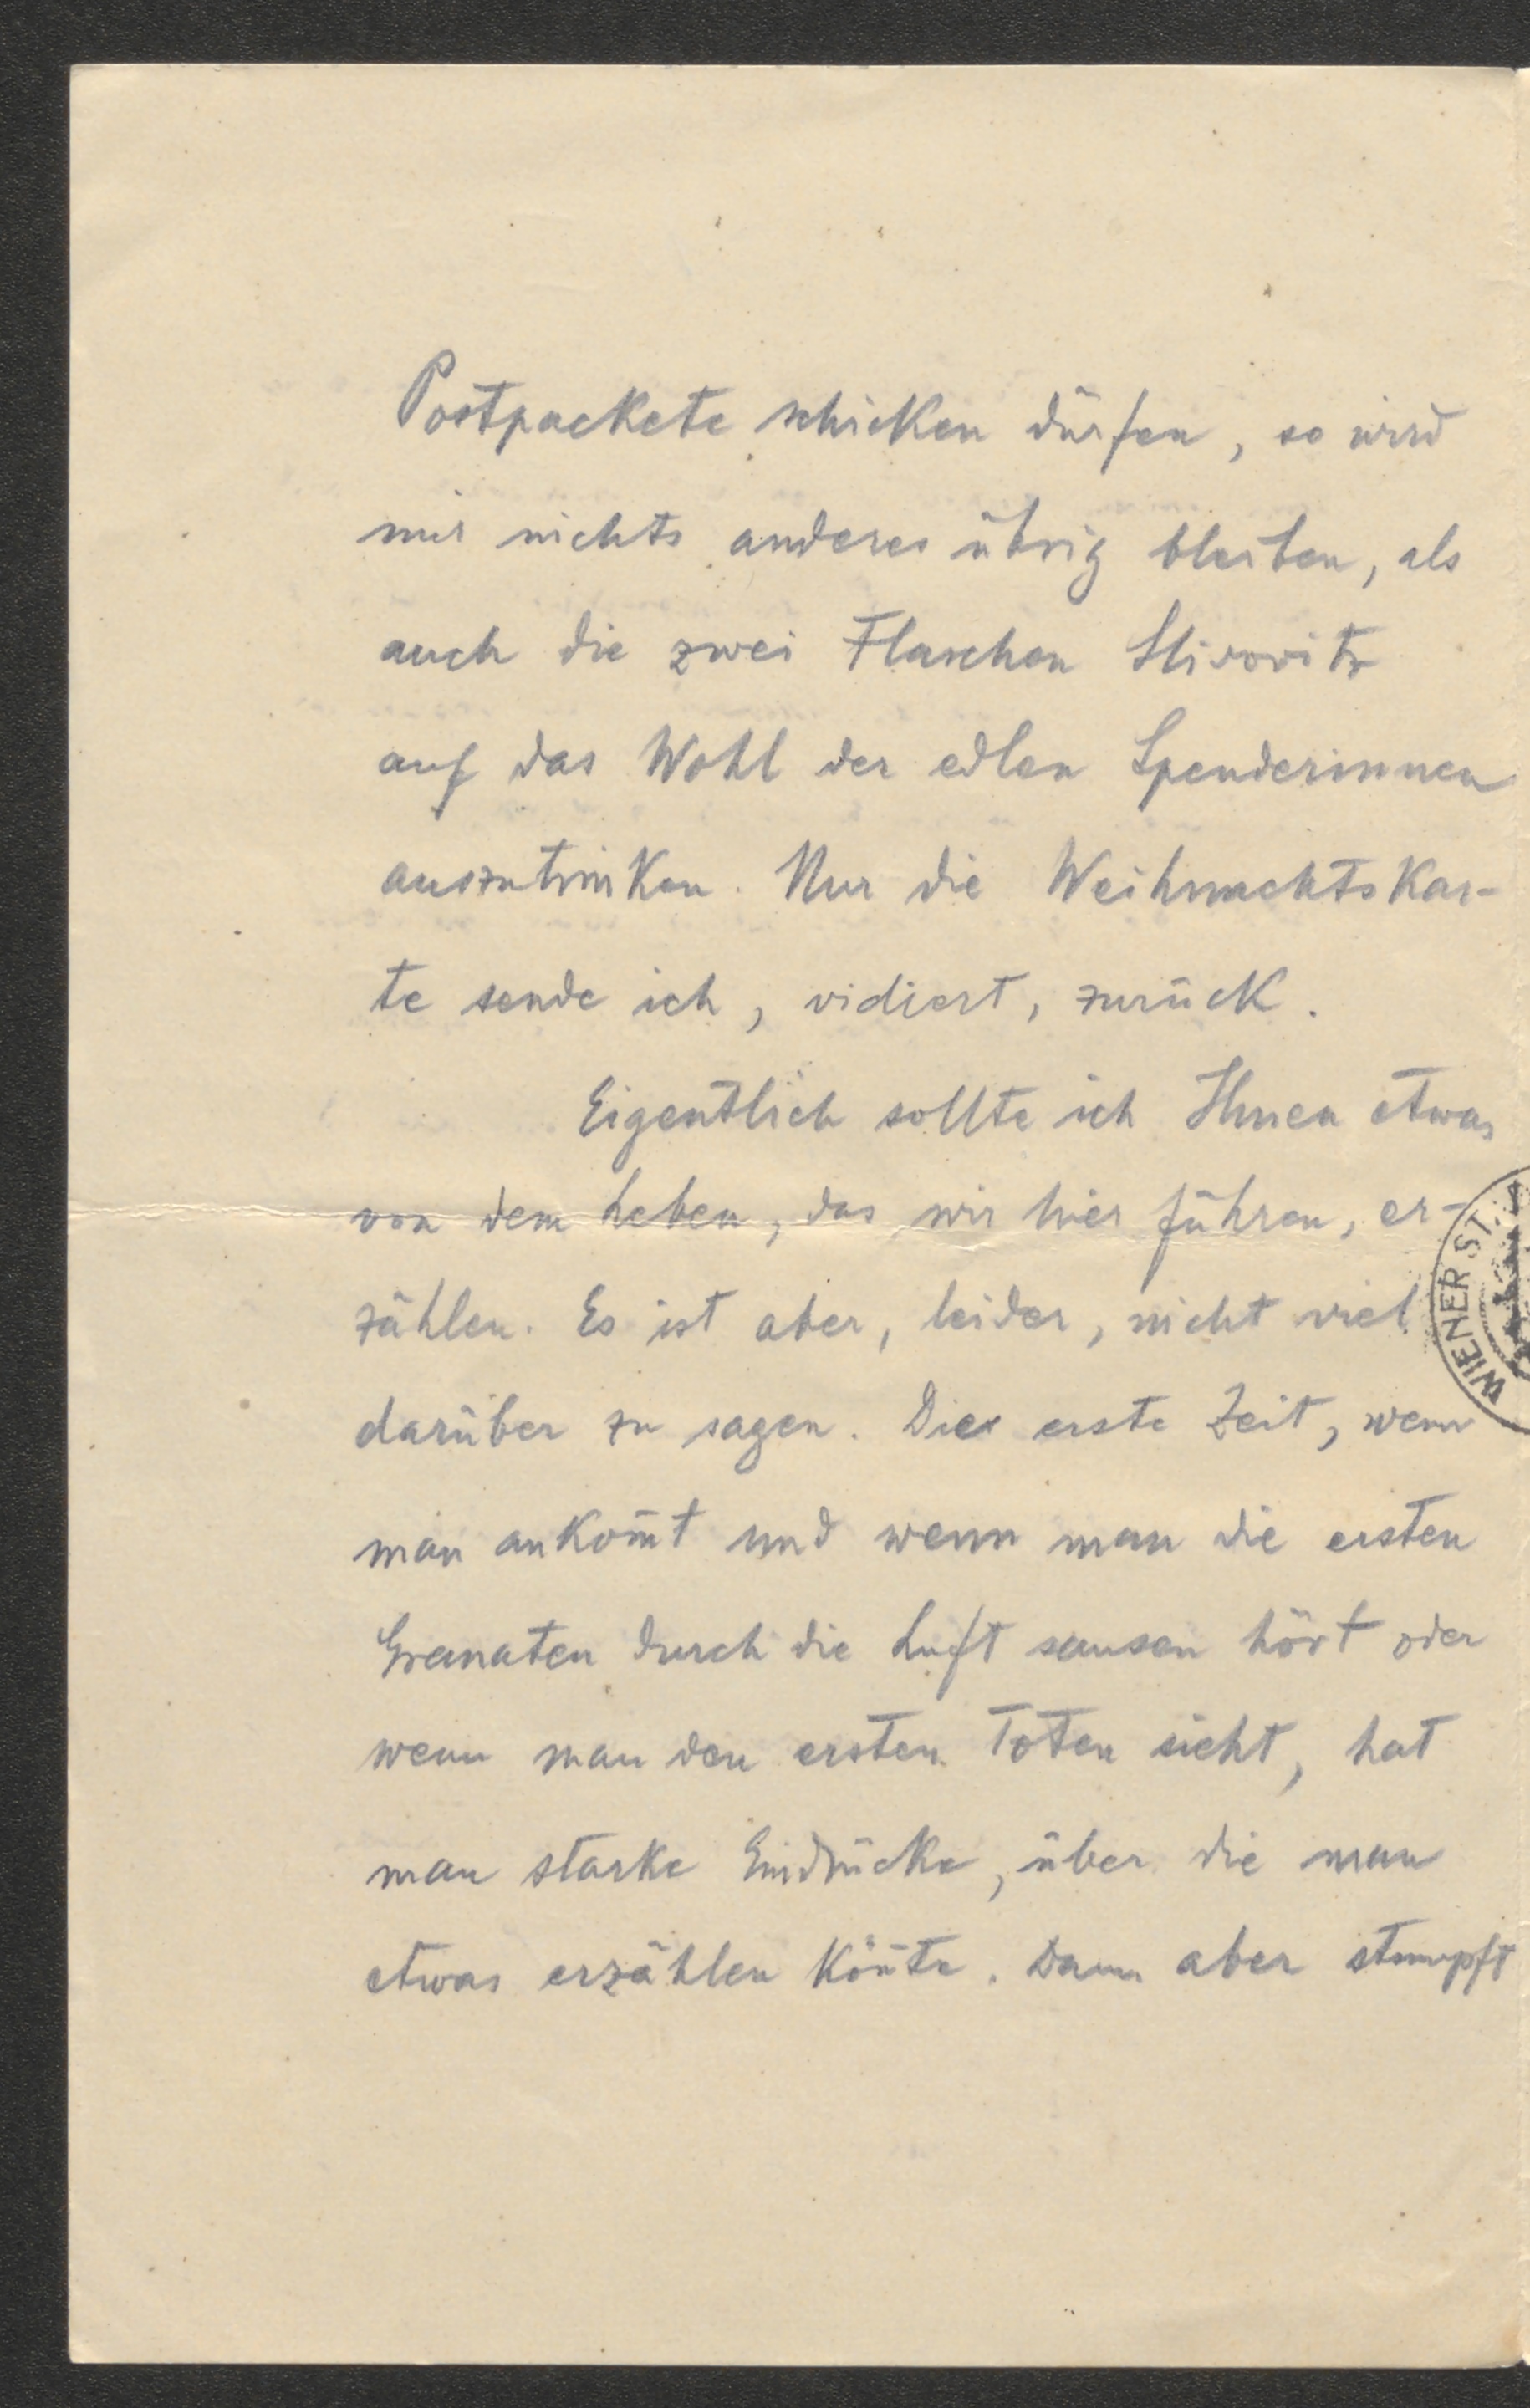 Postpackete schicken dürfen, so wird
mir nichts anderes übrig bleiben, als
auch die zwei Flaschen Slivovitz
auf das Wohl der edlen Spenderinnen
auszutrinken. Nur die Weihnachtskar-
te sende ich, vidiert, zurück.
Eigentlich sollte ich Ihnen etwas
von dem Leben, das wir hier führen, er-
zählen. Es ist aber, leider, nicht viel
darüber zu sagen. Die erste Zeit, wenn
man ankom̄t und wenn man die ersten
Granaten durch die Luft sausen hört oder
wenn man den ersten Toten sieht, hat
man starke Eindrücke, über die man
etwas erzählen kön̄te. Dann aber stumpft
WIENER ST